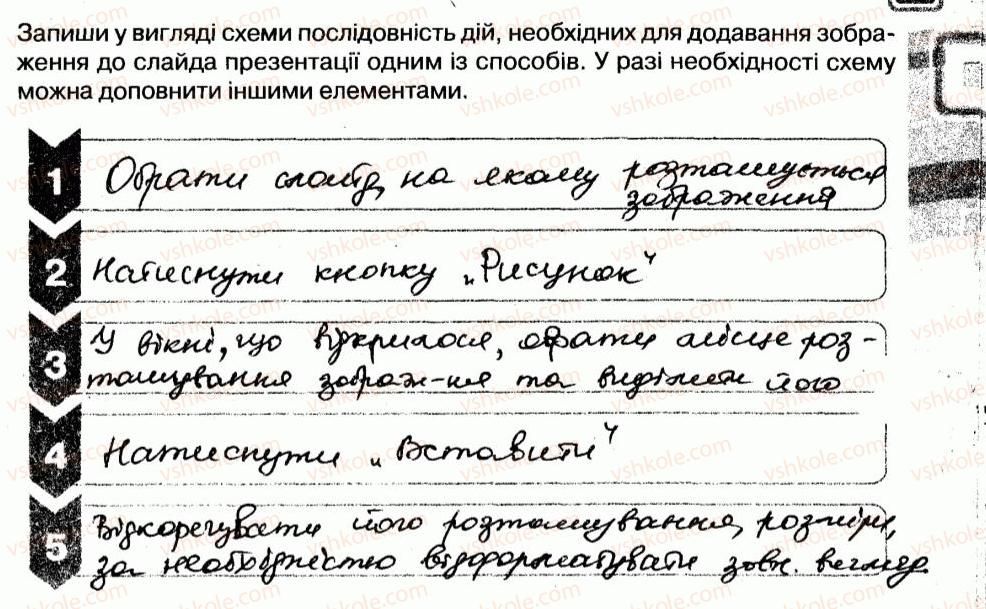 Запиши у вигляді схеми послідовність дій, необхідних для додавання зобра-
ження до слайда презентації одним із способів. У разі необхідності схему
можна доповнити іншими елементами.
1 Обрати слайд, на якому розташується
зображення
2 Натиснути кнопку „Рисунок"
3 У вікні, що відкрилося, обрати місце роз-
ташування зображ-ня та виділити його
4 Натиснути „Вставити"
5 Відкорегувати його розташування, розміри,
за необхідністю відформатувати зовн. вигляд
vshkole.com